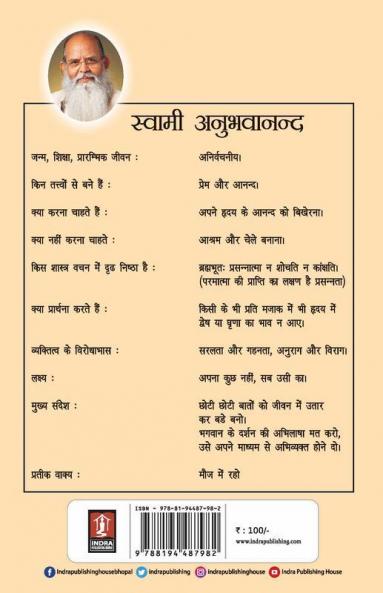 स्वामी अनुभवानन्द
जन्म, शिक्षा, प्रारम्भिक जीवन : अनिर्वचनीय।
किन तत्त्वों से बने हैं : प्रेम और आनन्द।
क्या करना चाहते हैं : अपने हृदय के आनन्द को बिखेरना।
क्या नहीं करना चाहते : आश्रम और चेले बनाना।
किस शास्त्र वचन में दृढ निष्ठा है : ब्रह्मभूतः प्रसन्नात्मा न शोचति न कांक्षति।
(परमात्मा की प्राप्ति का लक्षण है प्रसन्नता)
क्या प्रार्थना करते हैं : किसी के भी प्रति मजाक में भी हृदय में
द्वेष या घृणा का भाव न आए।
व्यक्तित्व के विरोधाभास : सरलता और गहनता, अनुराग और विराग।
लक्ष्य : अपना कुछ नहीं, सब उसी का।
मुख्य संदेश : छोटी छोटी बातों को जीवन में उतार
कर बडे बनो।
भगवान के दर्शन की अभिलाषा मत करो,
उसे अपने माध्यम से अभिव्यक्त होने दो।
प्रतीक वाक्य : मौज में रहो
ISBN - 978-81-94487-98-2
9 788194 487982
₹ : 100/-
www.indrapublishing.com
INDRA
PUBLISHING HOUSE
indrapublishinghousebhopal indrapublishing indrapublishinghouse Indra Publishing House